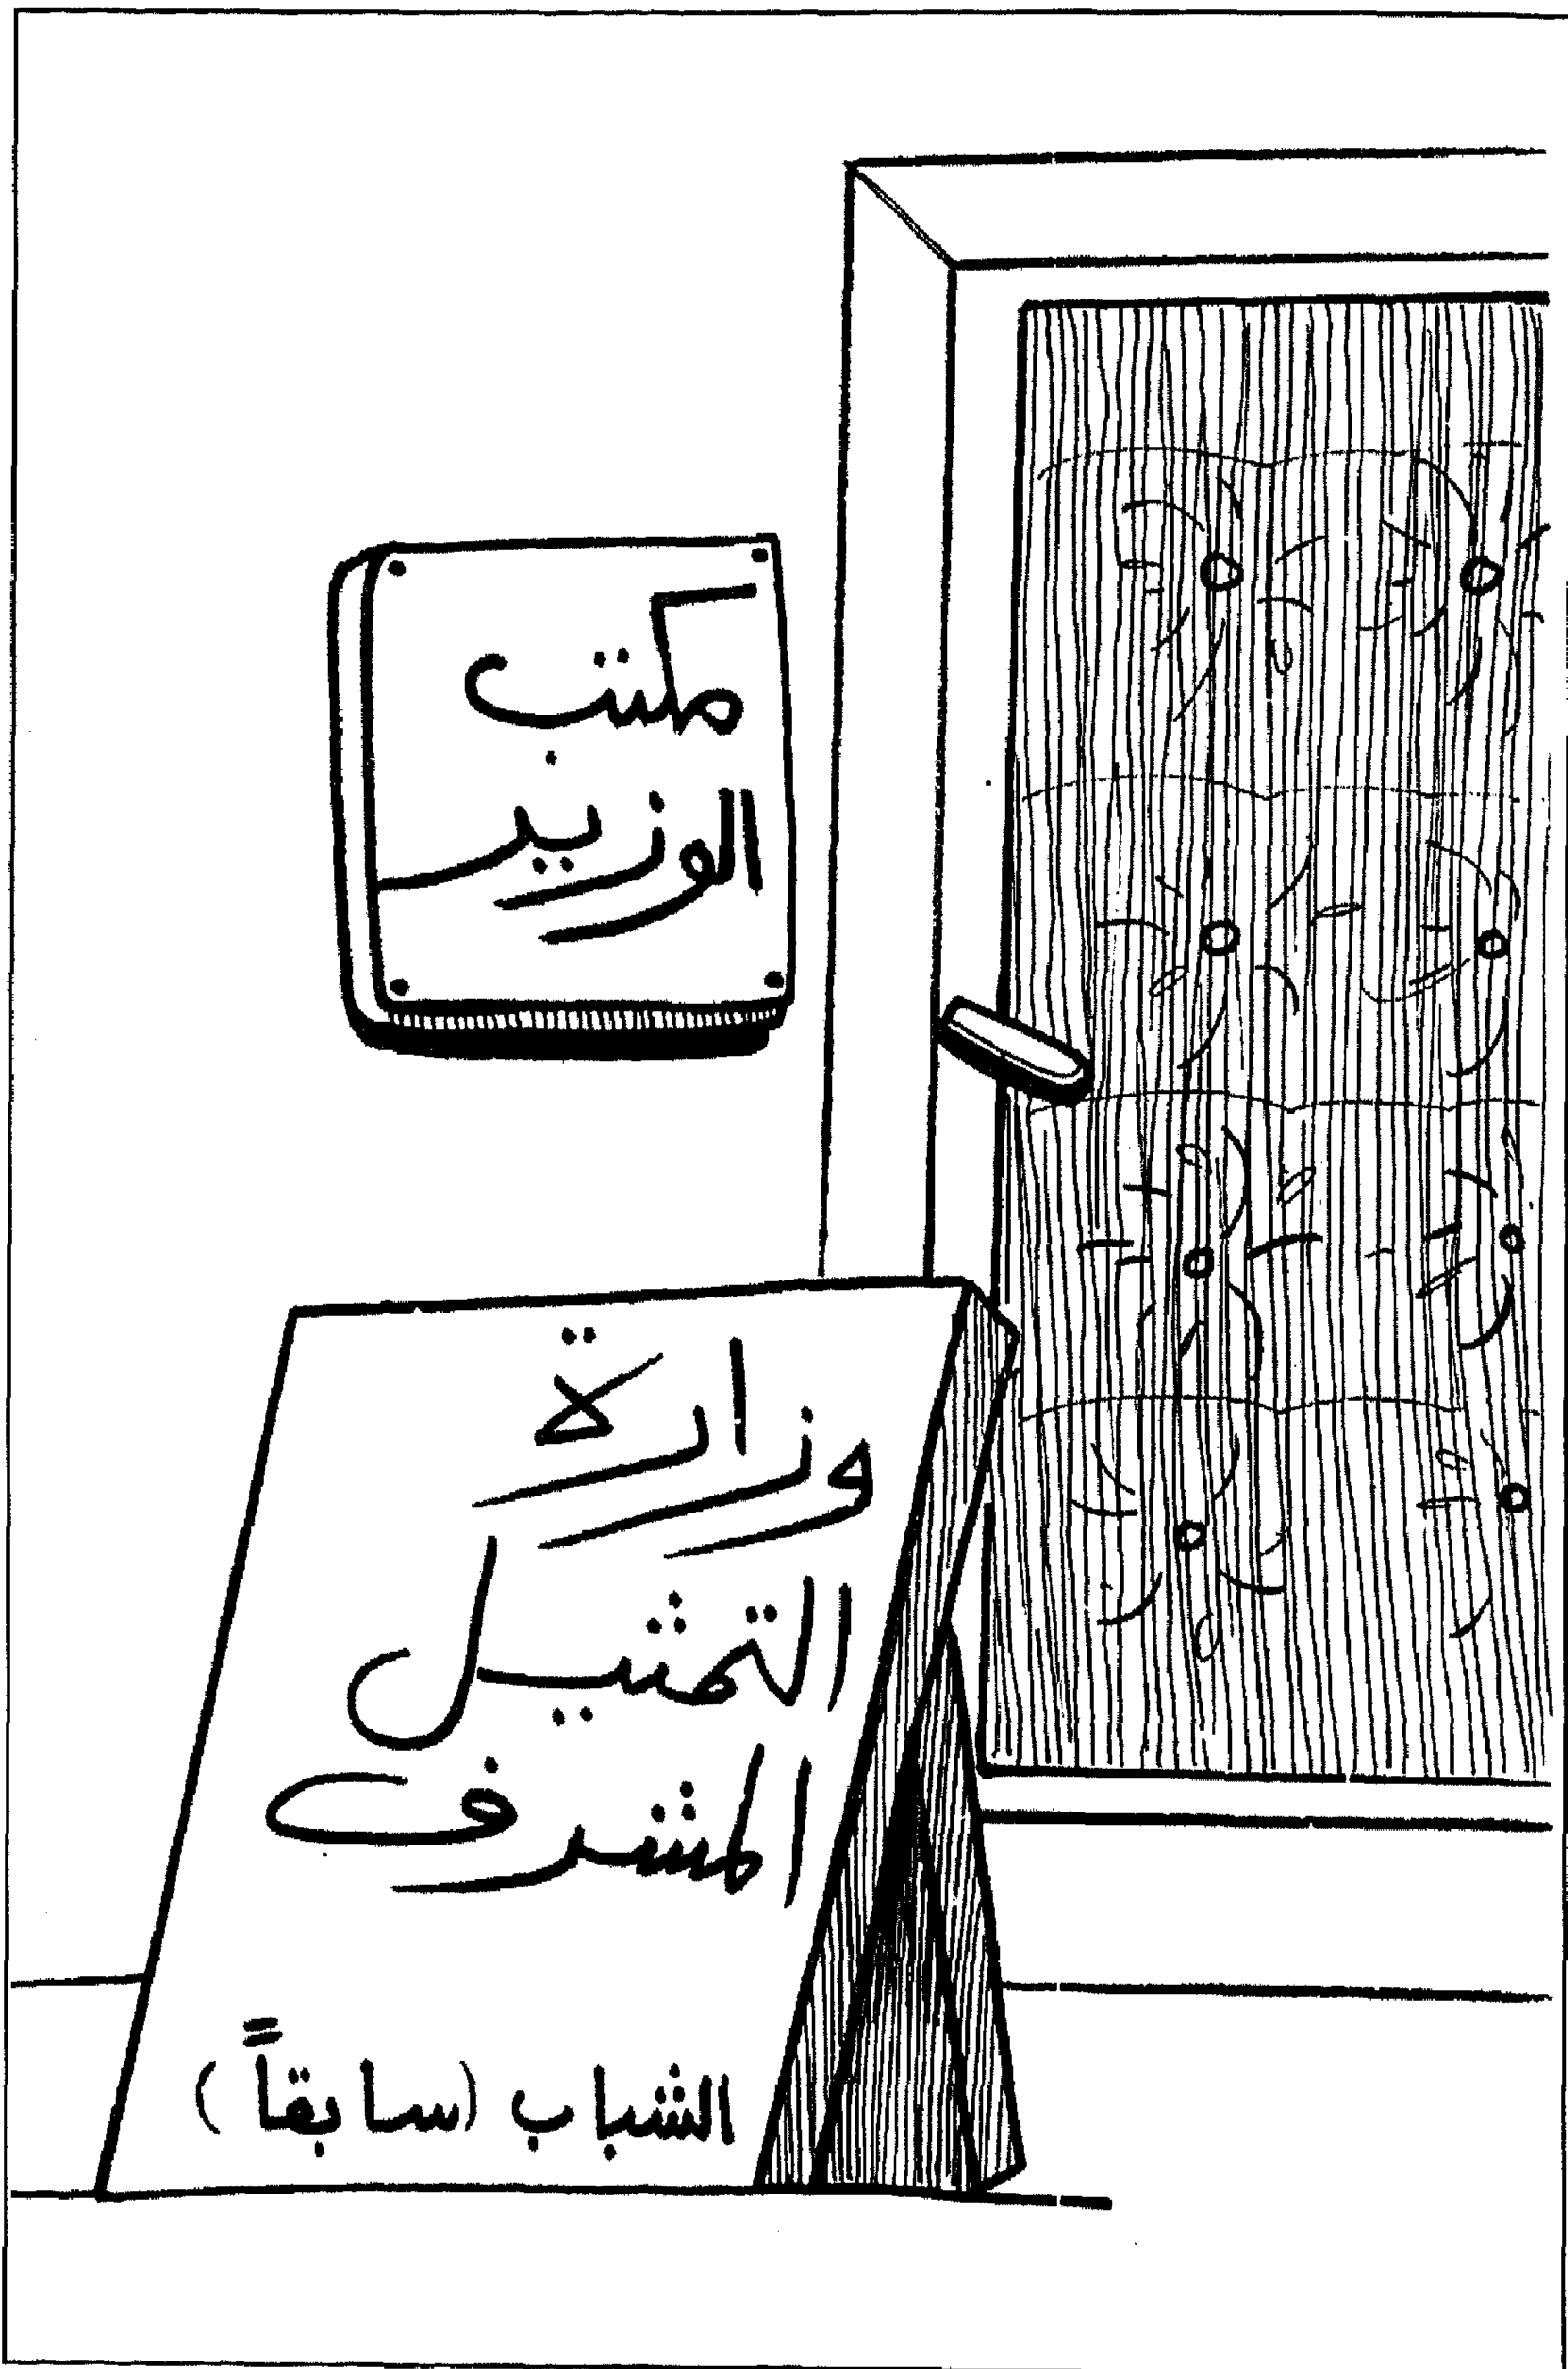 مكتب
الوزير
وزارة
التمثيل
المشرف
الشباب (سابقاً)